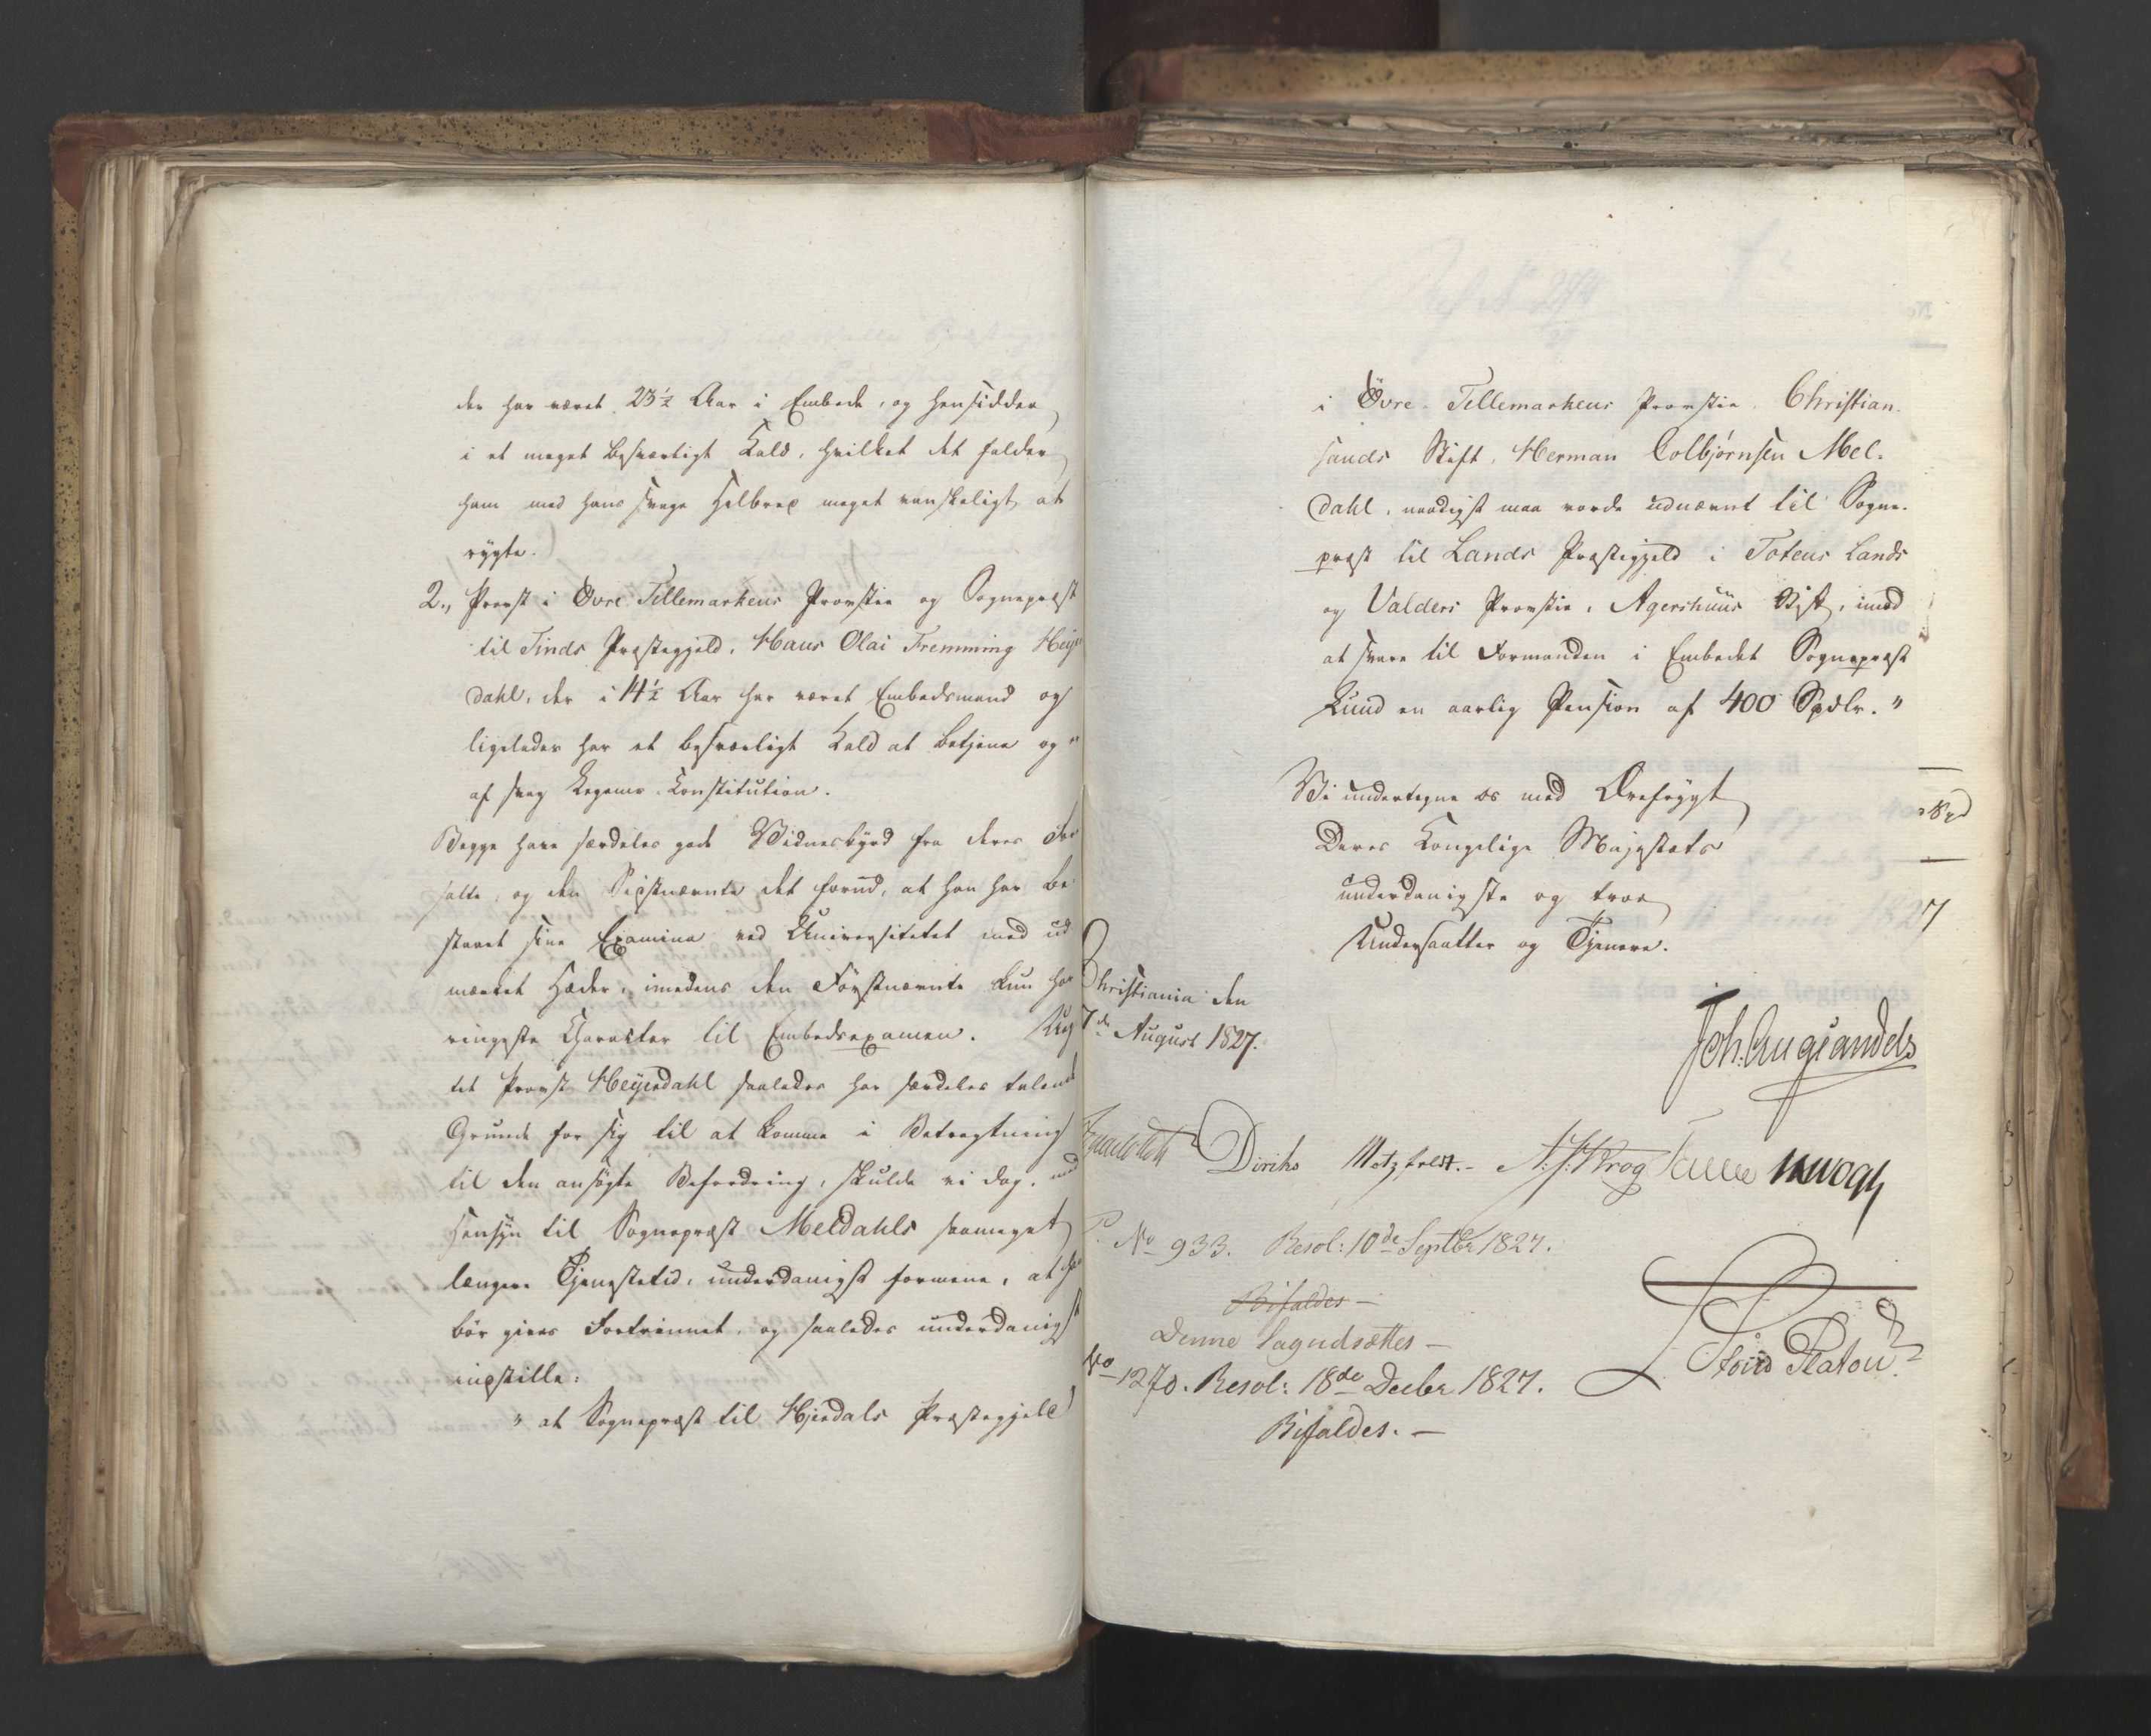 der har været 23½ Aar i Embede, og hensidder
i et meget besværligt Kald, hvilket det falder
ham med hans svage Helbred meget vanskeligt at
røgte.
2., Provst i Øvre Tellemarkens Provstie og Sognepræst
til Tinds Præstegjeld, Hans Olai Fremming Heyer
dahl, der i 14½ Aar har været Embedsmand og
ligeledes har et besværligt Kald at betjene og er
af svag Legems-Constitution.
Begge have særdeles gode Vidnesbyrd fra deres
satte, og den Sidstnævnte det forud, at han har be
staaet sine Examina ved Universitetet med ud
mærket Hæder, imedens den Förstnævnte kun har
ringeste Charakter til Embedsexamen. Uag
tet Provst Heyerdahl saaledes har særdeles talende
Grunde for sig til at komme i Betragtning
til den ansögte Befordring, skulde vi dog, med
Hensyn til Sognepræst Meldahls saameget
længere Tjenestetid, underdanigst formene, at han
bör gives Fortrinnet, og saaledes underdanigst
indstille:
" at Sognepræst til Hjerdals Præstegjeld
i Øvre Tellemarkens Provstie, Christian-
sands Stift, Herman Colbjørnsen Mel-
dahl, naadigst maa vorde udnævnt til Sogne-
præst til Lands Præstegjeld i Totens Lands
og Valders Provstie, Agershuus Stift, imod
at svare til Formanden i Embedet Sognepræst
Lund en aarlig Pension af 400 Spdlr."
Vi undertegne os med Ærefrygt
Deres Kongelige Majestæts
underdanigste og troe
Undersaatter og Tjenere.
Christiania den
7de August 1827.
Joh. Aug. Sandels
Diriks Motzfeldt. A:S:Krog Fasting
No 933. Resol: 10de Septbr 1827.
Bifaldes —
Denne Sag udsættes —
No 1270. Resol: 18de Decbr 1827.
Bifaldes. —
Stoud Platou